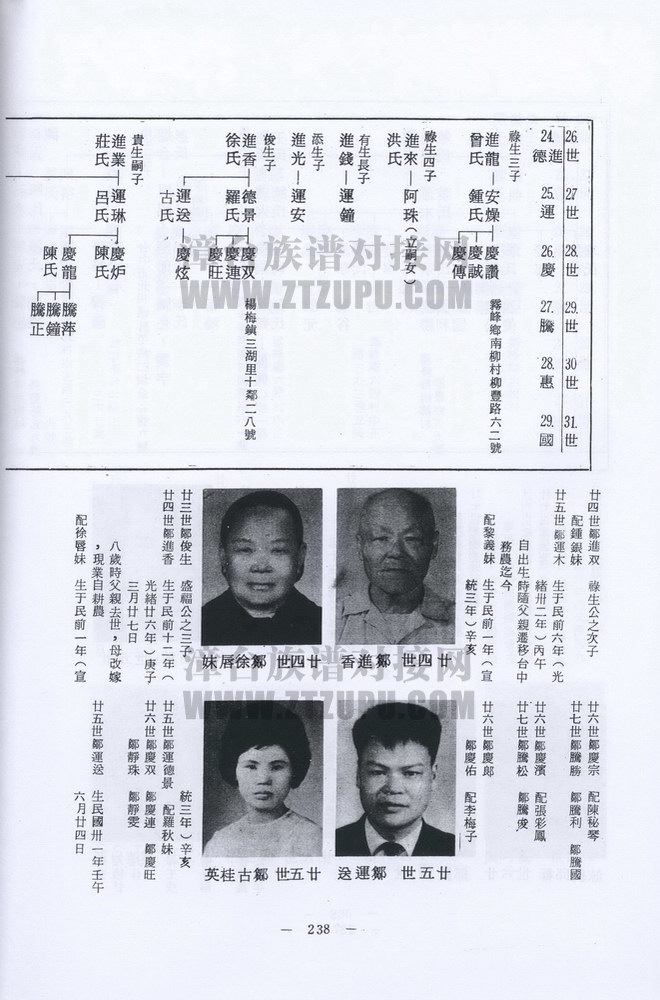 26.世 27世 28.世 29.世 30世 31.世
24.進德 25.運 26.慶 27.騰 28.惠 29.國
祿生三子
進龍—安燥—慶讚 霧峰鄉南柳村柳豐路六二號
曾氏 鍾氏 慶誠
慶傳
祿生四子
進來—阿珠(立嗣女)
洪氏
有生長子
進錢—運鐘
添生子
進光—運安
俊生子
進香—德景—慶双 楊梅鎮三湖里十鄰二八號
徐氏 羅氏 慶連
慶旺
運送—慶炫
古氏
貴生嗣子
進業—運琳—慶炉
莊氏 呂氏 陳氏
慶龍—騰萍
陳氏 騰鐘
騰正
廿四世鄒進双 祿生公之次子
配鍾銀妹
廿五世鄒運木 生于民前六年(光
緒卅二年)丙午
自出生時隨父親遷移台中
務農迄今
配黎義妹 生于民前一年(宣
統三年)辛亥
廿四世 鄒進香
廿四世 鄒徐唇妹
廿三世鄒俊生 盛福公之三子
廿四世鄒進香 生于民前十二年(
光緒廿六年)庚子
三月廿七日
八歲時父親去世,母改嫁
,現業自耕農
配徐唇妹 生于民前一年(宣
廿六世鄒慶宗 配陳秘琴
廿七世鄒騰勝 鄒騰利 鄒騰國
廿六世鄒慶濱 配張彩鳳
廿七世鄒騰松 鄒騰俊
廿六世鄒慶郎
鄒慶佑 配李梅子
廿五世 鄒運送
廿五世 鄒古桂英
統三年)辛亥
廿五世鄒運德景 配羅秋妹
廿六世鄒慶双 鄒慶連 鄒慶旺
鄒靜珠 鄒靜雯
廿五世鄒運送 生民國卅一年壬午
六月廿四日
— 238 —
漳台族谱对接网
WWW.ZTZUPU.COM
漳台族谱对接网
WWW.ZTZUPU.COM